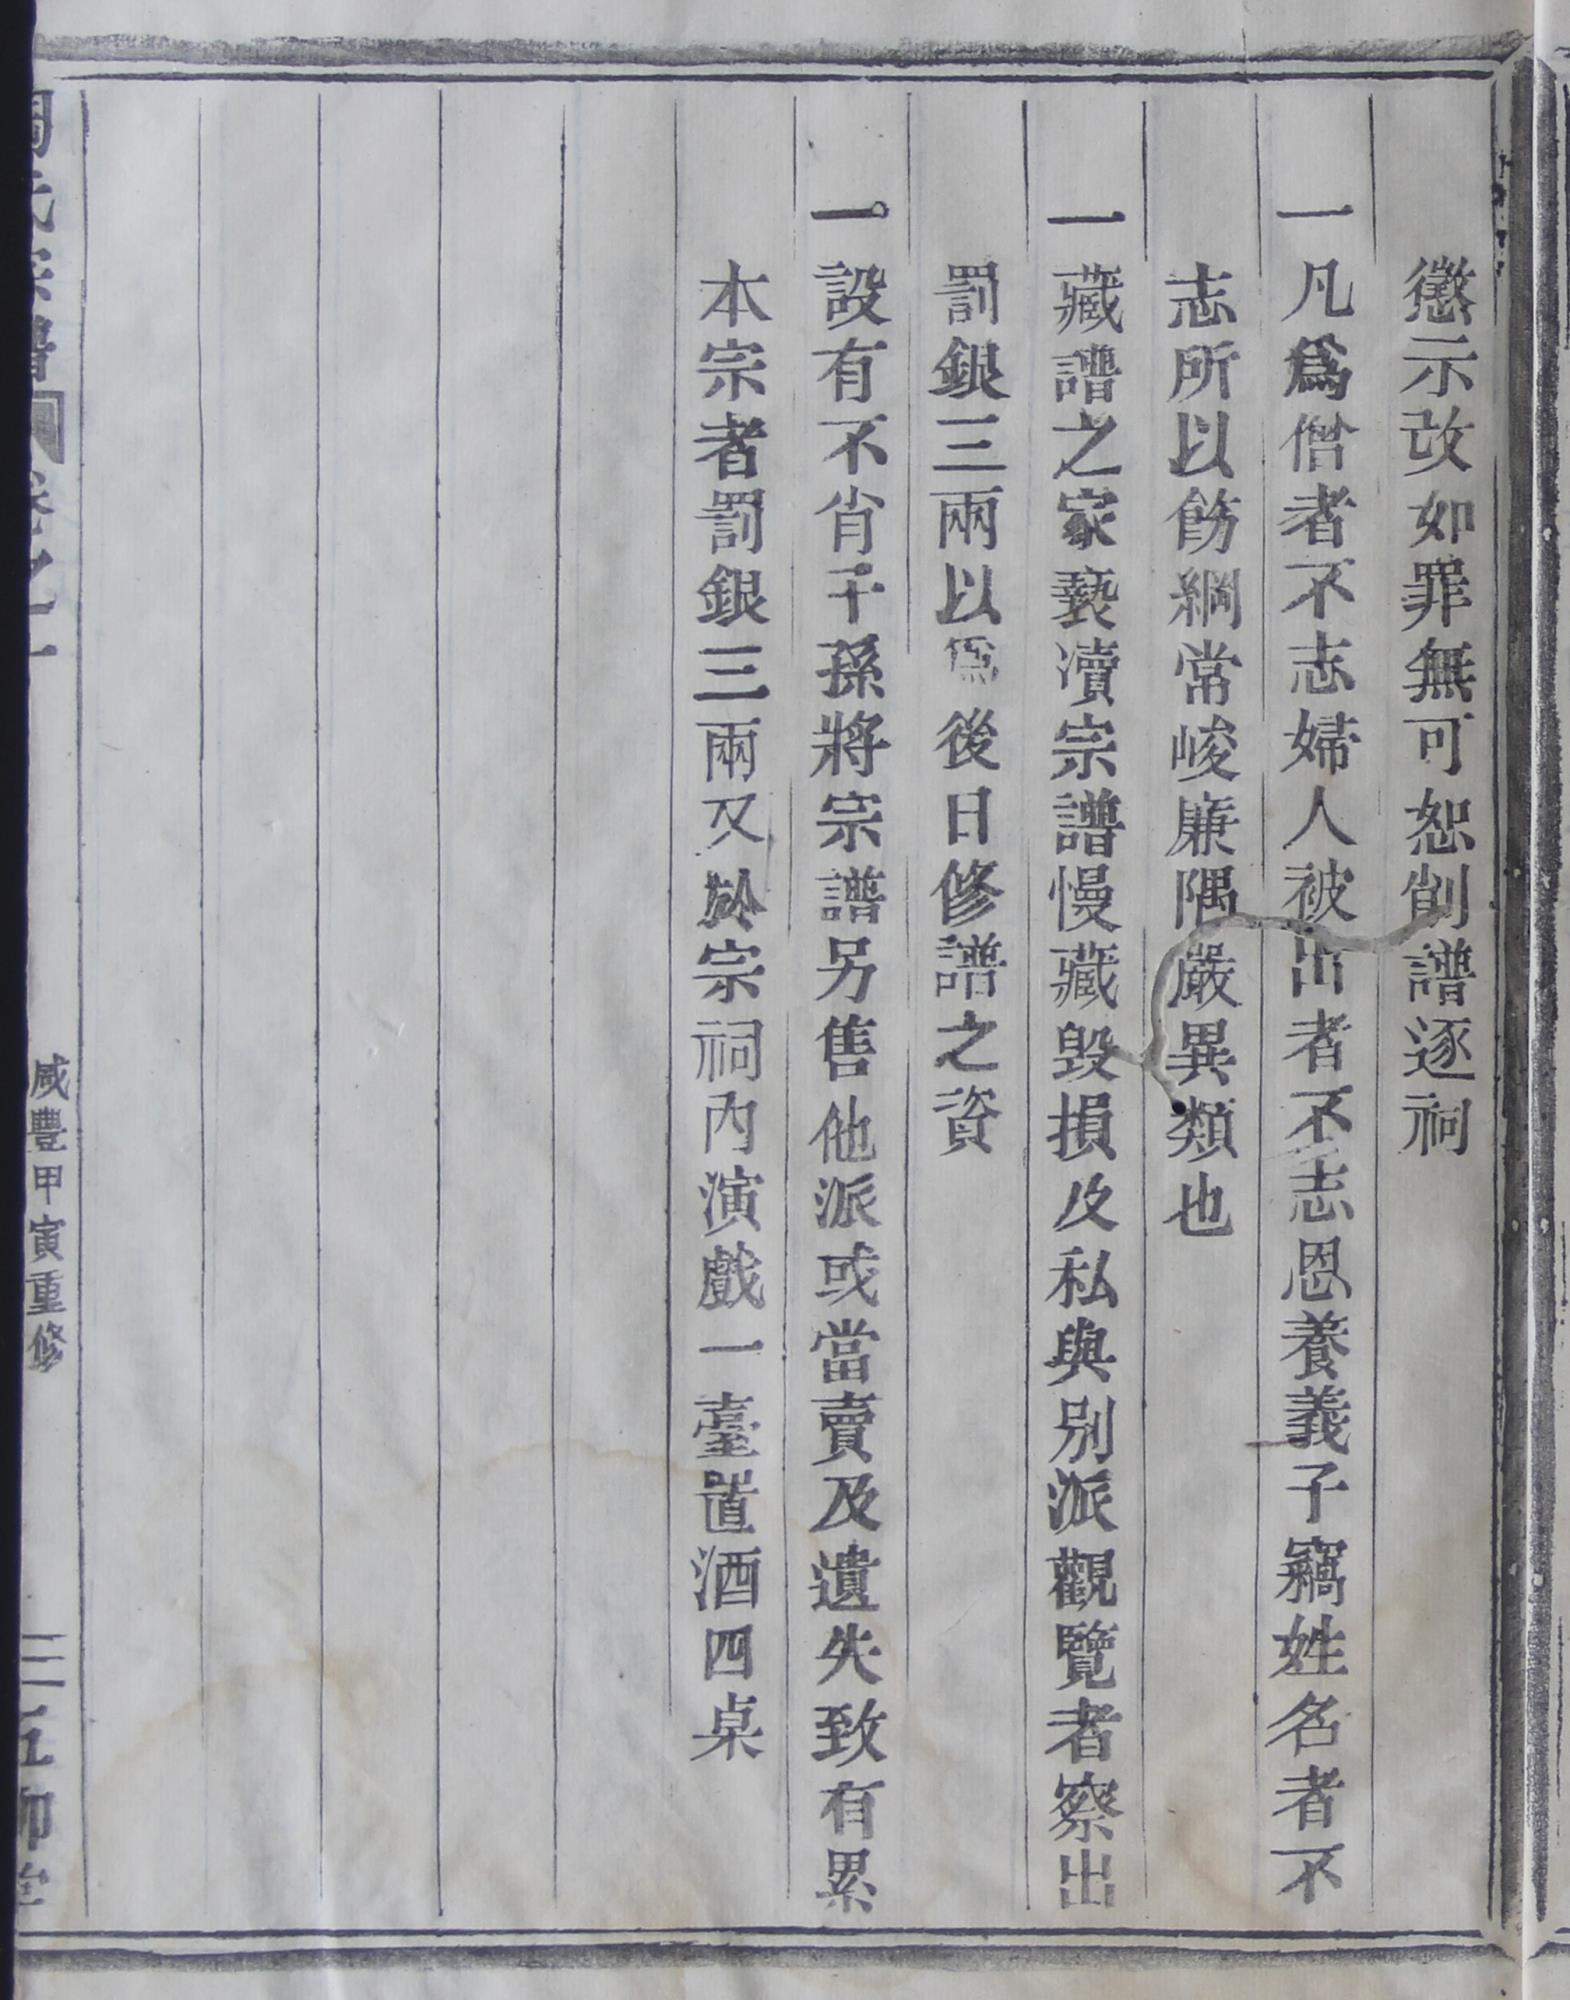 懲示改如罪無可恕削譜逐祠
一凡爲僧者不志婦人被出者不志恩養義子竊姓名者不
志所以飭綱常峻廉隅嚴異類也
一藏譜之家褻瀆宗譜慢藏毀損及私與別派觀覽者察出
罰銀三兩以爲後日修譜之資
一設有不肖子孫將宗譜另售他派或當賣及遺失致有累
本宗者罰銀三兩又於宗祠內演戲一臺置酒四桌
氏宗譜 卷之一 咸豐甲寅重修 三五